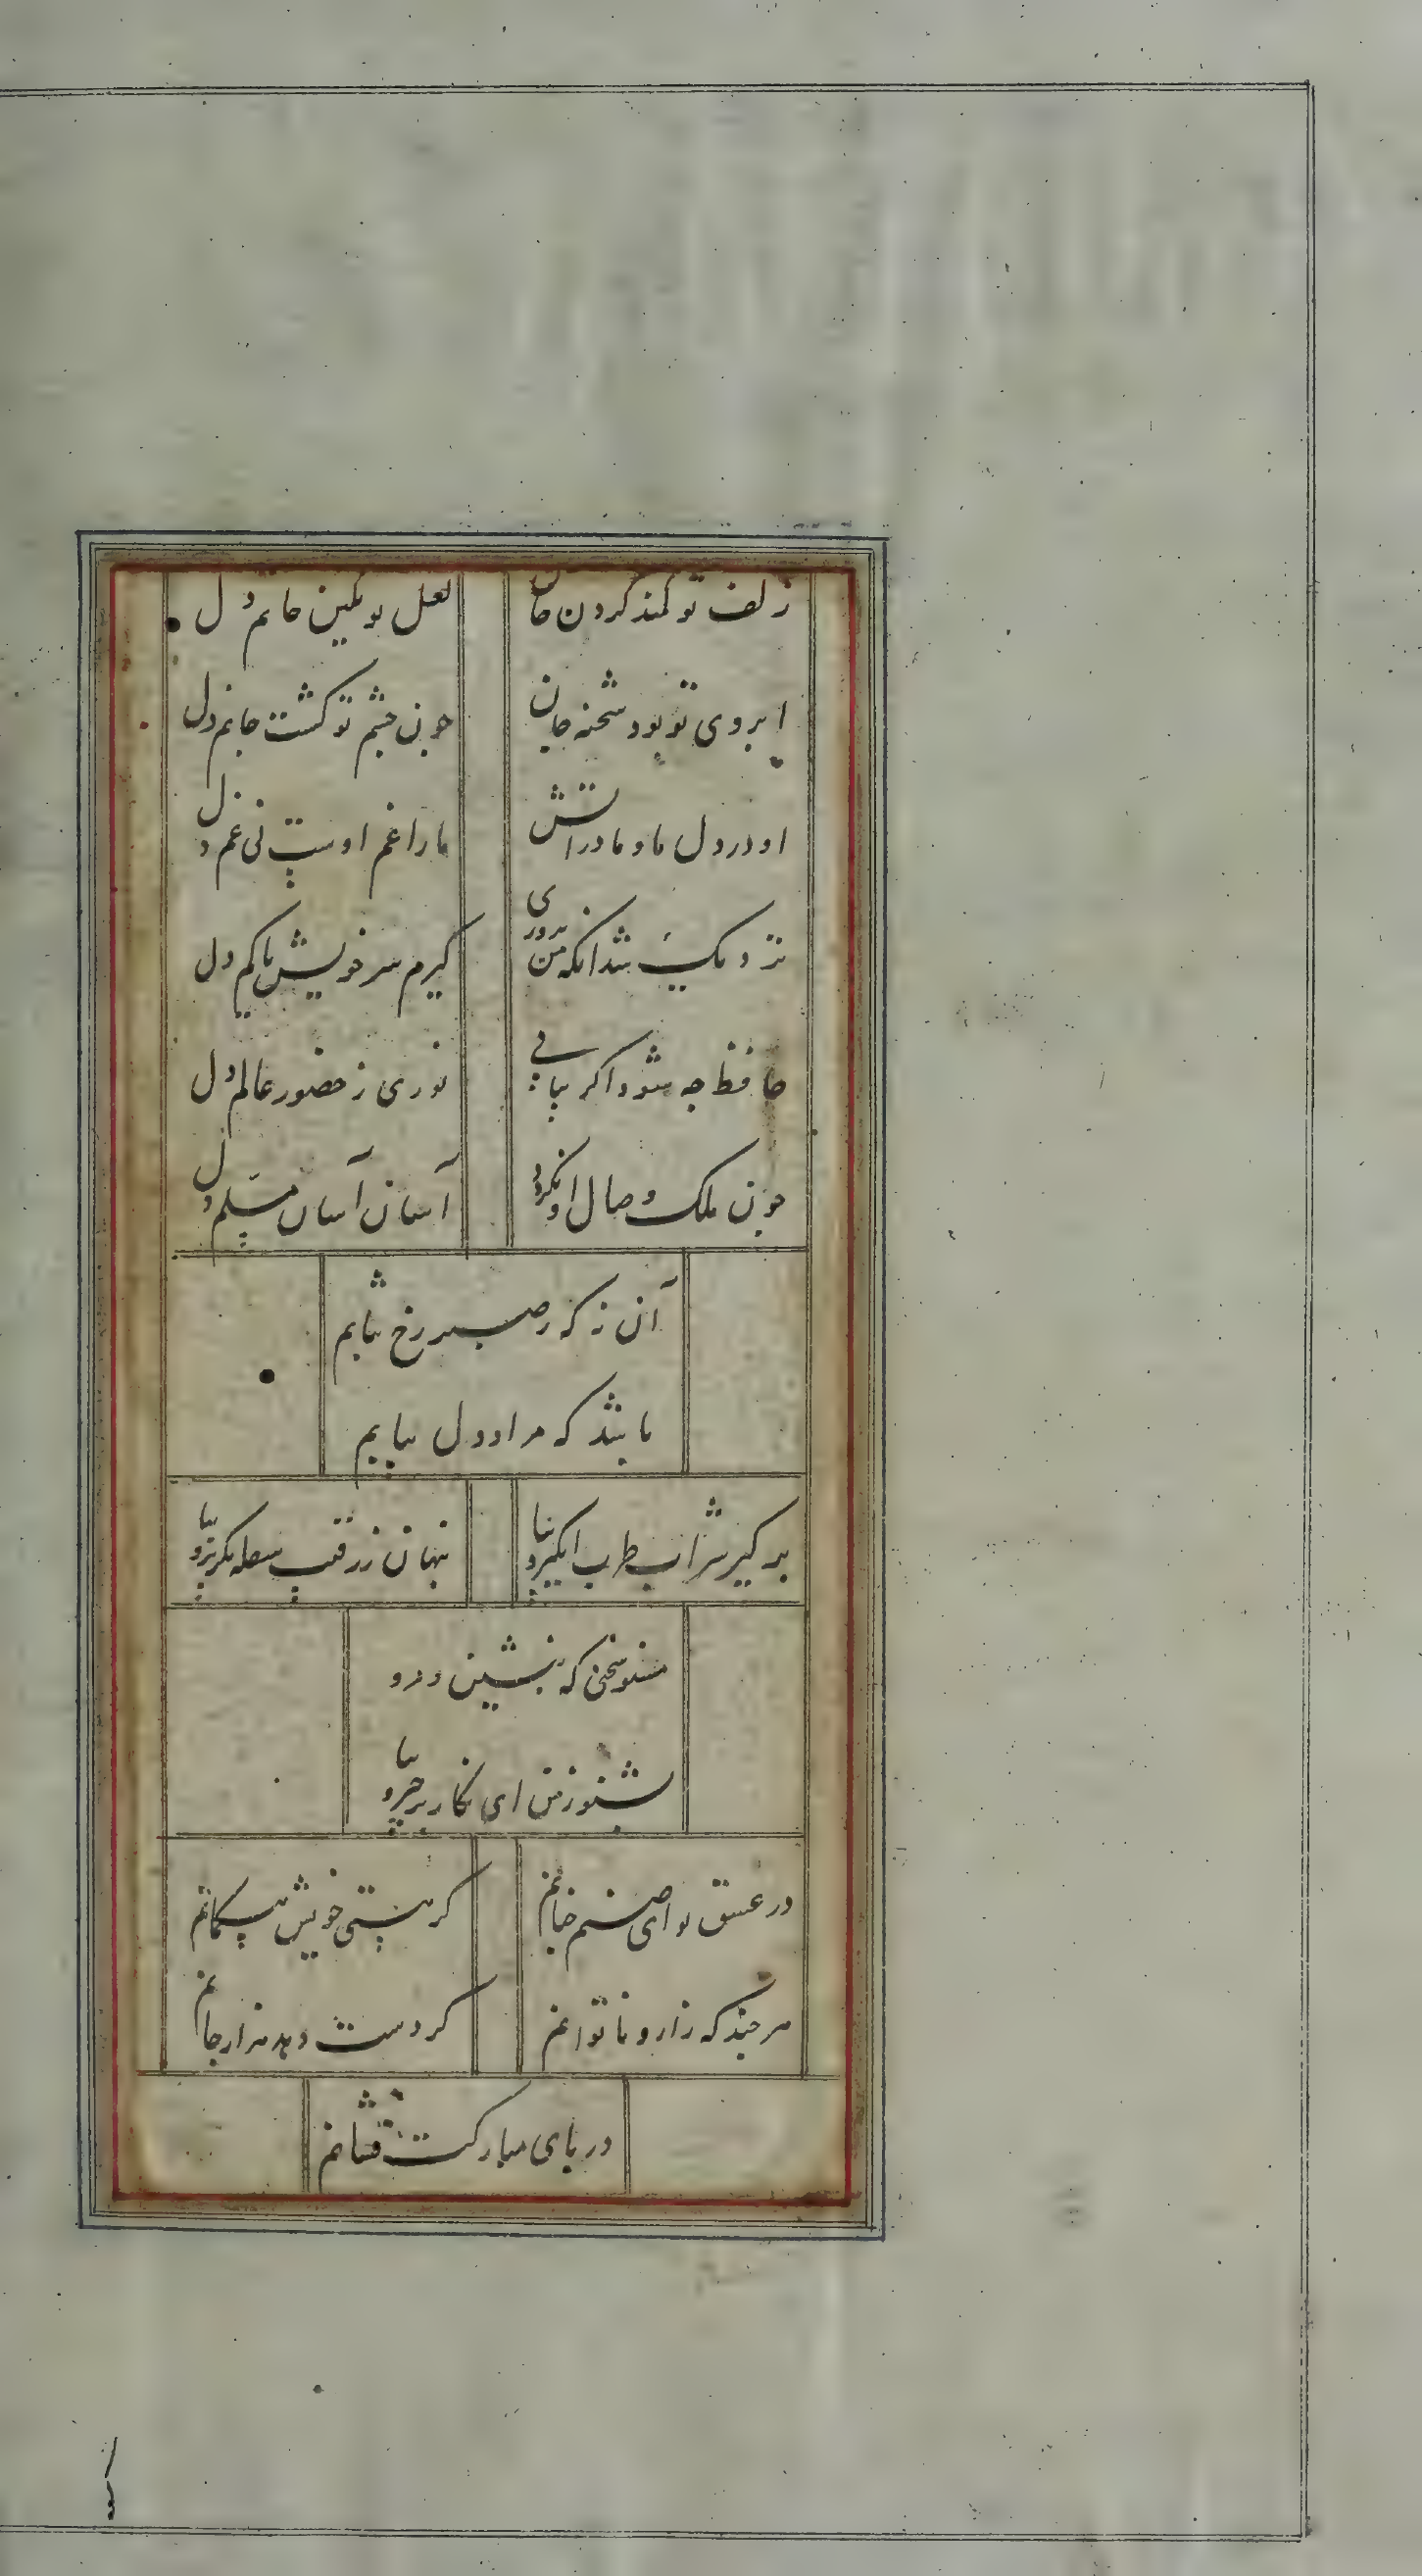 زلف تو کمند کردن جان
لعل تو نکین خاتم دل
ابروی تو بود شحنه جان
چون چشم تو کشت جانم دل
او در دل ما و ما در آتش
ما را غم اوست نی غم دل
نزدیک شد انکه من
کیرم سر خویش یا کم دل
حافظ چه شود اکر بیابی
نوری ز حضور عالم دل
چون ملک وصال او نکردد
آسان آسان مسلم دل
آن ز که ر صبر رخ بتابیم
باشد که مراد دل بیابیم
برکیر شراب طرب انکیز و بیا
پنهان ز رقیب سفله بکریز و بیا
مشنو سخنی که بنشین و مرو
بشنو ز من ای نکار برخیز و بیا
در عشق تو ای صنم چنانم
کز هستی خویش پیکمانم
هر چند که زار و ناتوانم
کر دست دهد هزار جانم
در پای مبارکت فشانم